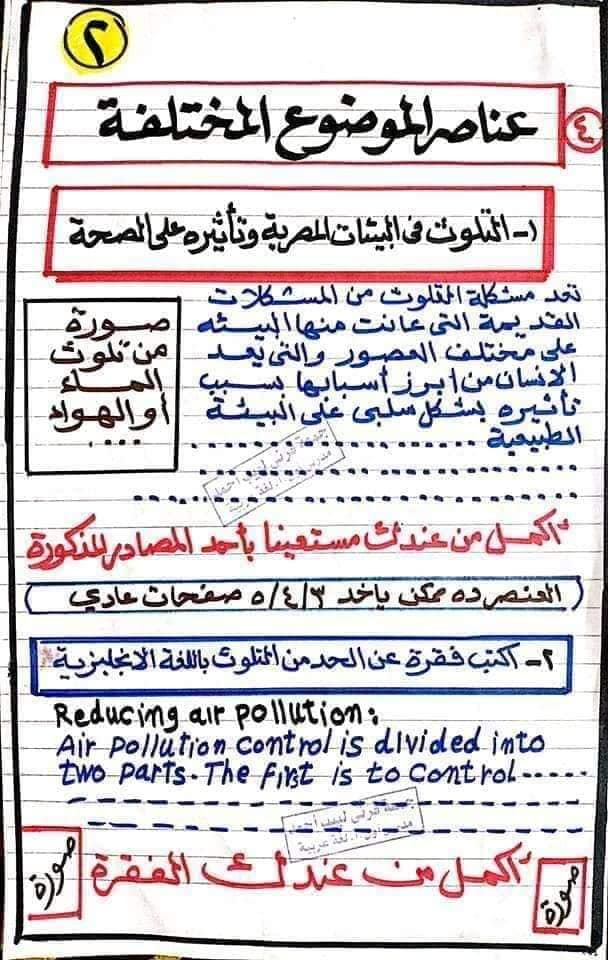 ٢
٤
عناصر الموضوع المختلفة
١- التلوث فى البيئات المصرية وتأثيره على الصحة
تعد مشكلة التلوث من المشكلات
القديمة التى عانت منها البيئه
على مختلف العصور والتى يعد
الانسان من ابرز أسبابها بسبب
تأثيره بشكل سلبى على البيئة
الطبيعية
صورة
من تلوث
الماء
أو الهواء
....
جمعة قرني لبيب احمد
مدرس أول أ. لغة عربية
أكمل من عندك مستعينا بأحد المصادر المذكورة
(العنصر ده ممكن ياخد ٣/٤/٥ صفحات عادي)
٢- اكتب فقرة عن الحد من التلوث باللغة الانجليزية
Reducing air pollution:
Air pollution control is divided into
two parts. The first is to control.....
جمعة قرني لبيب احمد
مدرس أول أ. لغة عربية
صورة
أكمل من عندك الفقرة
صورة